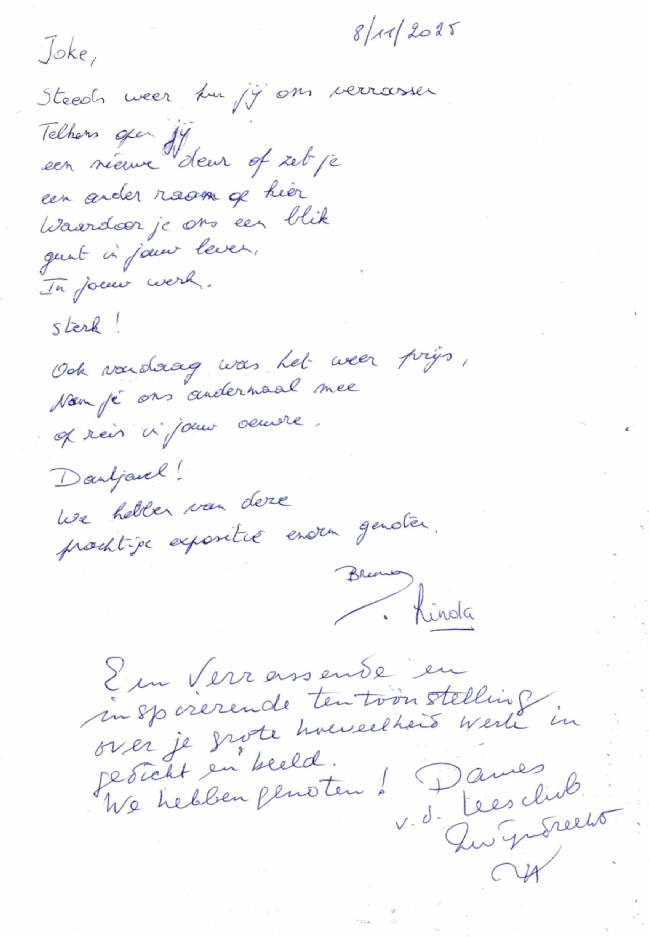 8/11/2025
Joke,
Steeds weer kun jij ons verrassen
Telkens open jij
een nieuwe deur of zet je
een ander raam op kier
Waardoor je ons een blik
gunt in jouw leven,
In jouw werk.
Sterk!
Ook vandaag was het weer prijs,
Nam je ons andermaal mee
op reis in jouw oeuvre.
Dankjewel!
We hebben van deze
prachtige expositie enorm genoten.
Bruno
Linda
Een Verrassende en
inspirerende tentoonstelling
over je grote hoeveelheid werk in
gedicht en beeld.
We hebben genoten! Dames
v.d. Leesclub
Zwijndrecht